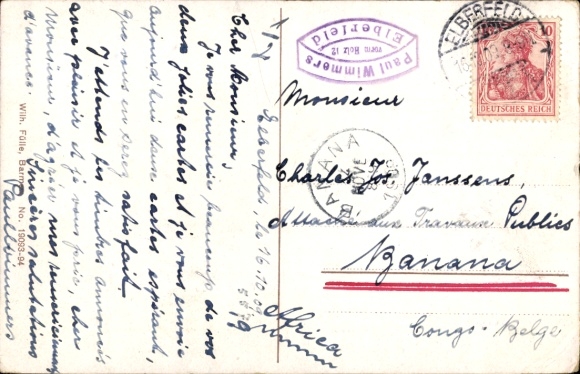 Elberfeld, le 16.10.09
Cher Monsieur,
Je vous remercie beaucoup de vos
deux jolies cartes et je vous envoie
aujourd'hui douze cartes espérant,
que vous en serez satisfait.
J'attends les timbres annoncés
avec plaisir et je vous prie, cher
Monsieur, d'agréer mes remerciements
d'avance.
Sincères salutations
Paul Wimmers
Wilh. Fülle, Barmen No. 19093-94
Paul Wimmers
vorm Holz 12
Elberfeld
ELBERFELD
10
DEUTSCHES REICH
Monsieur
BANANA
NOVE
Charles Jos Janssens,
Attaché aux Travaux Publics
Banana
Africa
Congo-Belge